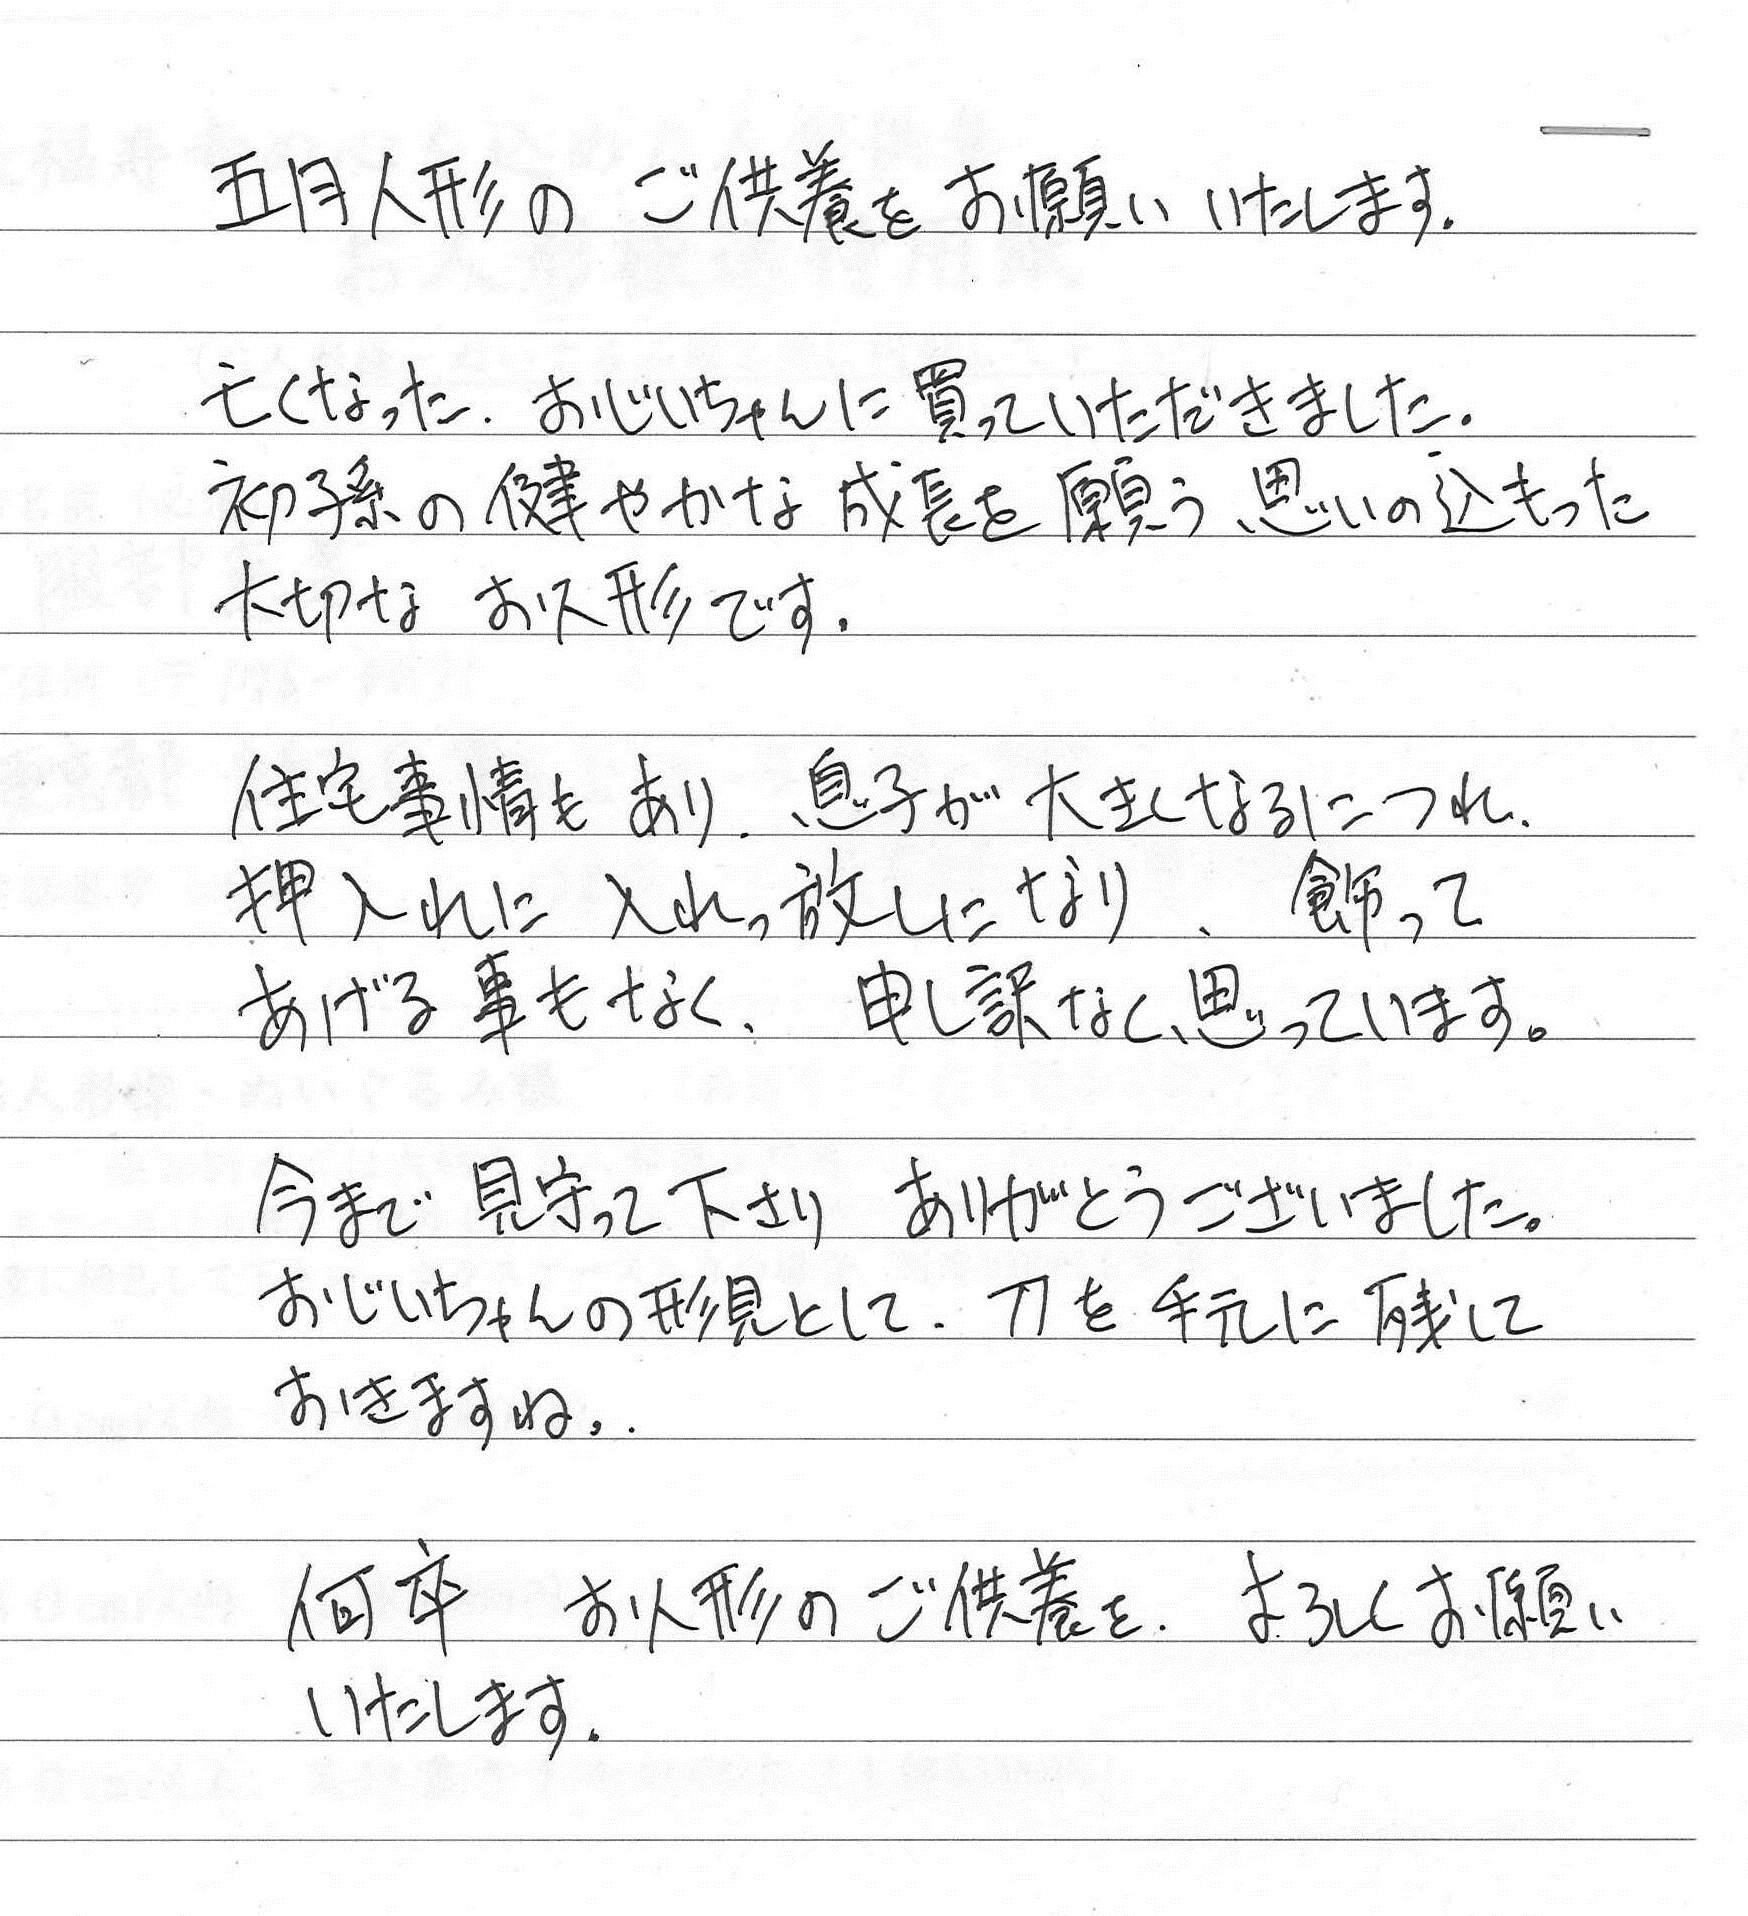 五月人形の ご供養を お願い いたします.
亡くなった. おじいちゃんに 買っていただきました.
初孫の 健やかな 成長を 願う 思いの 込もった
大切な お人形です.
住宅事情も あり. 息子が 大きくなるにつれ.
押入れに 入れっ放しに なり、 飾って
あげる 事もなく、 申し訳なく思っています。
今まで 見守って 下さり ありがとうございました。
おじいちゃんの形見として. 刀を 手元に 残して
おきますね..
何卒 お人形のご供養を. よろしくお願い
いたします.